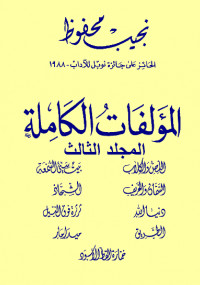 نجيب محفوظ
الحائز على جائزة نوبل للآداب - ١٩٨٨
المؤلفات الكاملة
المجلد الثالث
اللص والكلاب بيت سيئ السمعة
السمان والخريف الشحاذ
دنيا الله ثرثرة فوق النيل
الطريق ميرامار
خمارة القط الأسود